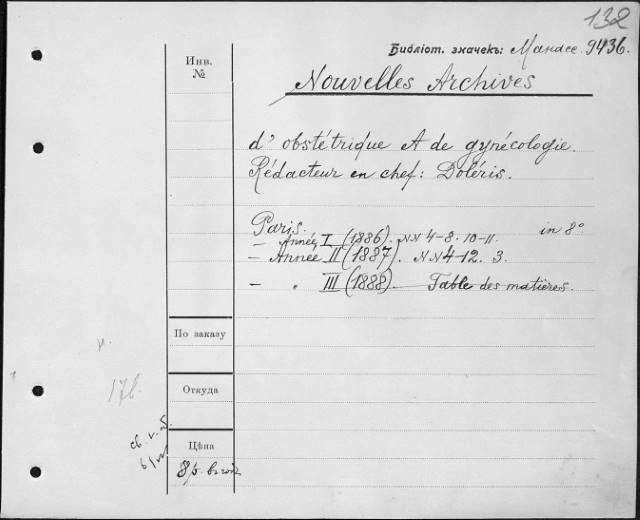 132
Библіот. значекъ: 9436.
Инв.
№
Nouvelles Archives
d'obstétrique et de gynécologie.
Rédacteur en chef: Doléris.
Paris. in 8°
- Année I (1886). NN 4-8. 10-11.
- Année II (1887). NN 4-12. 3.
- " III (1888). Table des matières.
По заказу
176.
Откуда
Цѣна